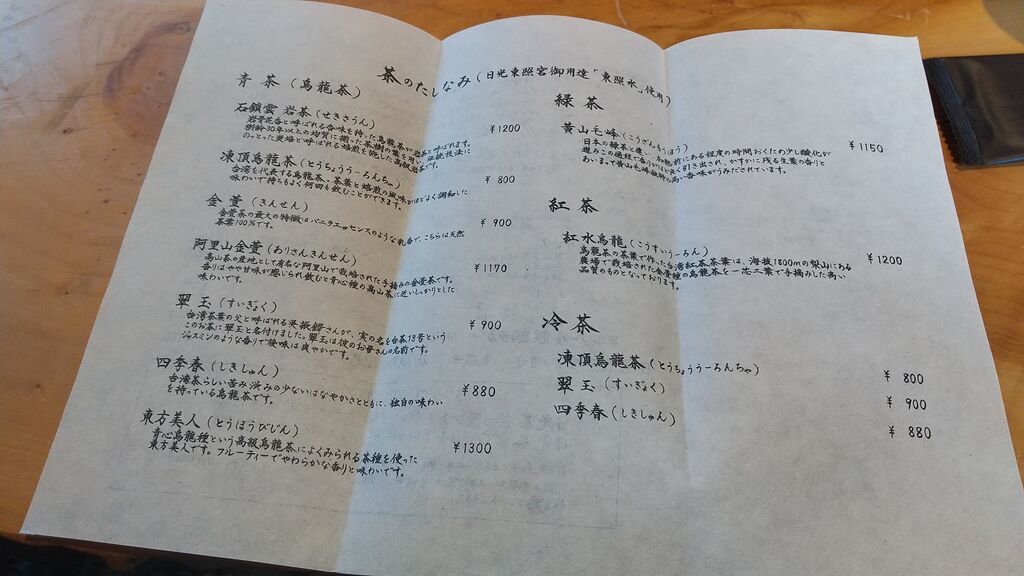 茶のたしなみ(日光東照宮御用達「東照水」使用)
青茶(烏龍茶)
石鎖雲 岩茶(せきさうん) ¥1200
岩骨花香と呼ばれる香味を持った烏龍茶が岩茶と呼ばれます。
樹齢30年以上の均質に揃った茶樹から葉を摘み、伝統技法に
のっとった炭焙と呼ばれる焙煎を施した高級岩茶です。
凍頂烏龍茶(とうちょううーろんちゃ) ¥800
台湾を代表する烏龍茶。茶葉と焙煎の風味がほどよく調和した
味わいで持ちもよく何回も飲むことができます。
金萱(きんせん) ¥900
金萱茶の最大の特徴はバニラエッセンスのような乳香で、こちらは天然
茶葉100%です。
阿里山金萱(ありさんきんせん) ¥1170
高山茶の産地として有名な阿里山で栽培された手摘みの金萱茶です。
香りはやや甘味が感じられ飲むと青心種の高山茶に近いしっかりとした
味わいです。
翠玉(すいぎょく) ¥900
台湾茶葉の父と呼ばれる呉振鐸さんが、実の名を台茶13号という
このお茶に翠玉と名付けました。翠玉は彼のお母さんの名前です。
ジャスミンのような香りで後味は爽やかです。
四季春(しきしゅん) ¥880
台湾茶らしい苦み渋みの少ないはなやかさとともに、独自の味わい
を持っている烏龍茶です。
東方美人(とうほうびじん) ¥1300
青心烏龍種という高級烏龍茶によくみられる茶種を使った
東方美人です。フルーティーでやわらかな香りと味わいです。
緑茶
黄山毛峰(こうざんもうほう) ¥1150
日本の緑茶と違い、加熱前にある程度の時間おくため少し酸化が
進みこの過程で香りがほどよく引き出され、かすかに残る生葉の香りと
あいまって黄山毛峰独特の高い香味がうみだされています。
紅茶
紅水烏龍(こうすいうーろん) ¥1200
烏龍茶の茶葉で作った台湾紅茶茶葉は、海抜1800mの梨山にある
農場で栽培された青心種の烏龍茶を一芯二葉で手摘みした高い
品質のものとなっております。
冷茶
凍頂烏龍茶(とうちょううーろんちゃ) ¥800
翠玉(すいぎょく) ¥900
四季春(しきしゅん) ¥880